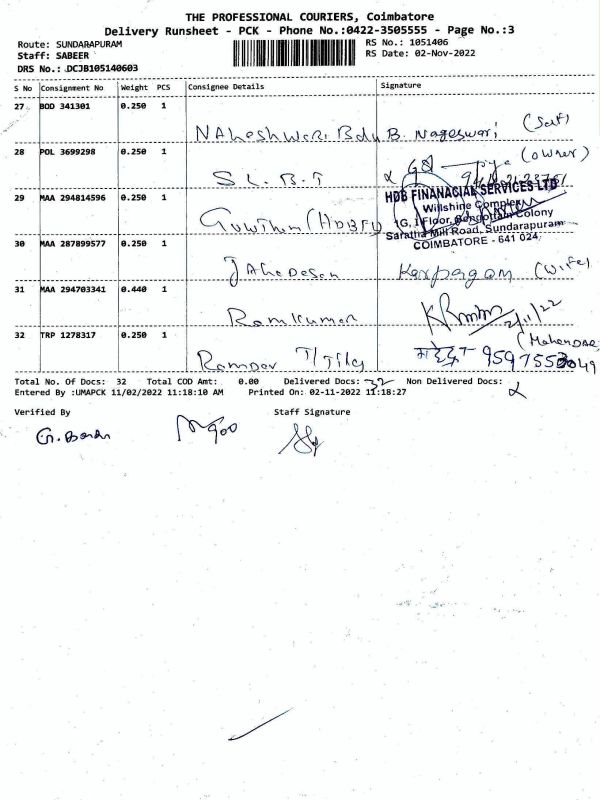 THE PROFESSIONAL COURIERS, Coimbatore
Delivery Runsheet - PCK - Phone No.:0422-3505555 - Page No.:3
Route: SUNDARAPURAM RS No.: 1051406
Staff: SABEER RS Date: 02-Nov-2022
DRS No.: DCJB105140603
S No Consignment No Weight PCS Consignee Details Signature
27 BOD 341301 0.250 1
NAheshwari Bdu B. Nageswari (Self)
28 POL 3699298 0.250 1
S L. B. T (owner)
29 MAA 294814596 0.250 1
HDB FINANACIAL SERVICES LTD
Willshine Complex
1G, I Floor, Colony
Saratha Mill Road, Sundarapuram
COIMBATORE - 641 024
Gowthum (HDBFS)
30 MAA 287899577 0.250 1
JAhadesan Karpagam (wife)
31 MAA 294703341 0.440 1
Ramkumar 2/11/22
32 TRP 1278317 0.250 1
(Mahendar)
Ramdev T/Tiles महेंद्र 9597553049
Total No. Of Docs: 32 Total COD Amt: 0.00 Delivered Docs: 32 Non Delivered Docs:
Entered By :UMAPCK 11/02/2022 11:18:10 AM Printed On: 02-11-2022 11:18:27
Verified By Staff Signature